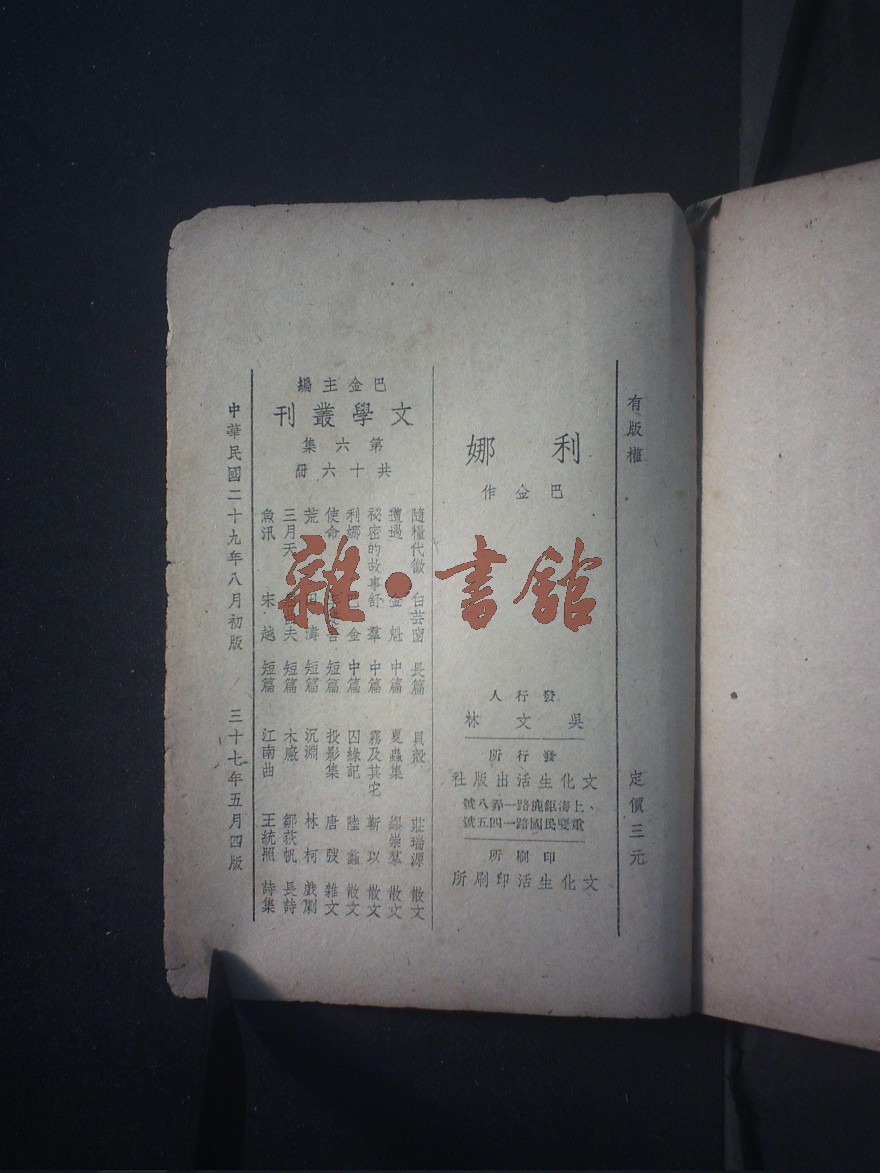 有版權
定價三元
利娜
巴金作
發行人
吳文林
發行所
文化生活出版社
上海鉅鹿路一弄八號
重慶民國路一四五號
印刷所
文化生活印刷所
巴金主編
文學叢刊
第六集
共十六冊
隨糧代徵 白芸窗 長篇
遭遇 金魁 中篇
祕密的故事 舒羣 中篇
利娜 巴金 中篇
使命 吾 短篇
荒 田濤 短篇
三月天 夫 短篇
魚汛 宋越 短篇
貝殼 莊瑞源 散文
夏蟲集 繆崇羣 散文
霧及其它 靳以 散文
囚綠記 陸蠡 散文
投影集 唐弢 雜文
沉淵 林柯 戲劇
木廠 鄒荻帆 長詩
江南曲 王統照 詩集
中華民國二十九年八月初版 三十七年五月四版
雜·書館